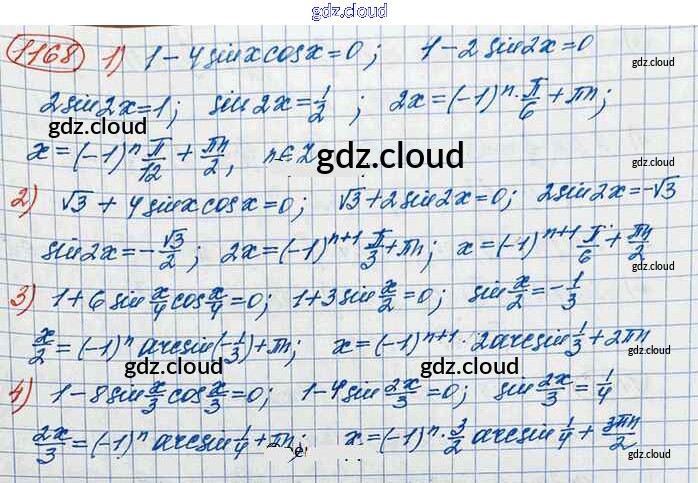 gdz.cloud
1168 1) 1-4sinxcosx=0; 1-2sin2x=0
gdz.cloud
2sin2x=1; sin2x=1/2; 2x=(-1)^n·π/6+πn;
gdz.cloud
gdz.cloud
x=(-1)^n π/12+πn/2, n∈Z
gdz.cloud
gdz.cloud
2) √3+4sinxcosx=0; √3+2sin2x=0; 2sin2x=-√3
sin2x=-√3/2; 2x=(-1)^(n+1) π/3+πn; x=(-1)^(n+1) π/6+πn/2
gdz.cloud
3) 1+6sin x/4 cos x/4=0; 1+3sin x/2=0; sin x/2=-1/3
x/2=(-1)^n arcsin(-1/3)+πn; x=(-1)^(n+1)·2arcsin 1/3+2πn
gdz.cloud
gdz.cloud
gdz.cloud
4) 1-8sin x/3 cos x/3=0; 1-4sin 2x/3=0; sin 2x/3=1/4
2x/3=(-1)^n arcsin 1/4+πn; x=(-1)^n·3/2 arcsin 1/4+3πn/2
gdz.cloud